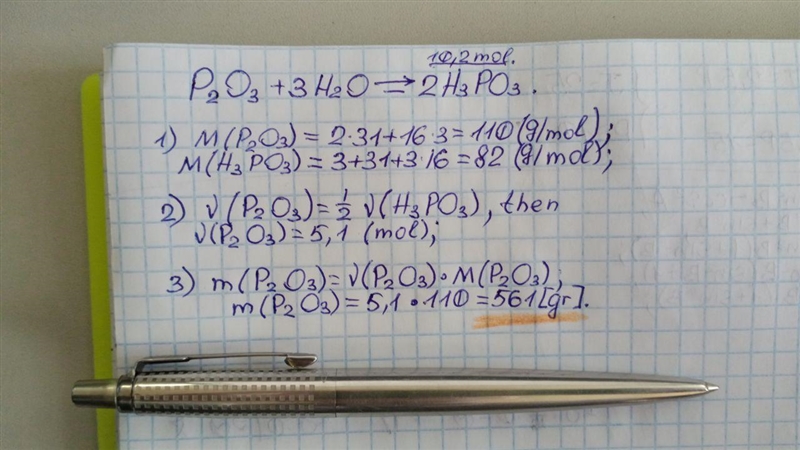 10,2 mol.
P₂O₃ + 3H₂O ⇒ 2H₃PO₃.
1) M(P₂O₃) = 2·31+16·3 = 110 (g/mol);
M(H₃PO₃) = 3+31+3·16 = 82 (g/mol);
2) ν(P₂O₃) = ½ ν(H₃PO₃), then
ν(P₂O₃) = 5,1 (mol);
3) m(P₂O₃) = ν(P₂O₃)·M(P₂O₃);
m(P₂O₃) = 5,1·110 = 561 [gr].